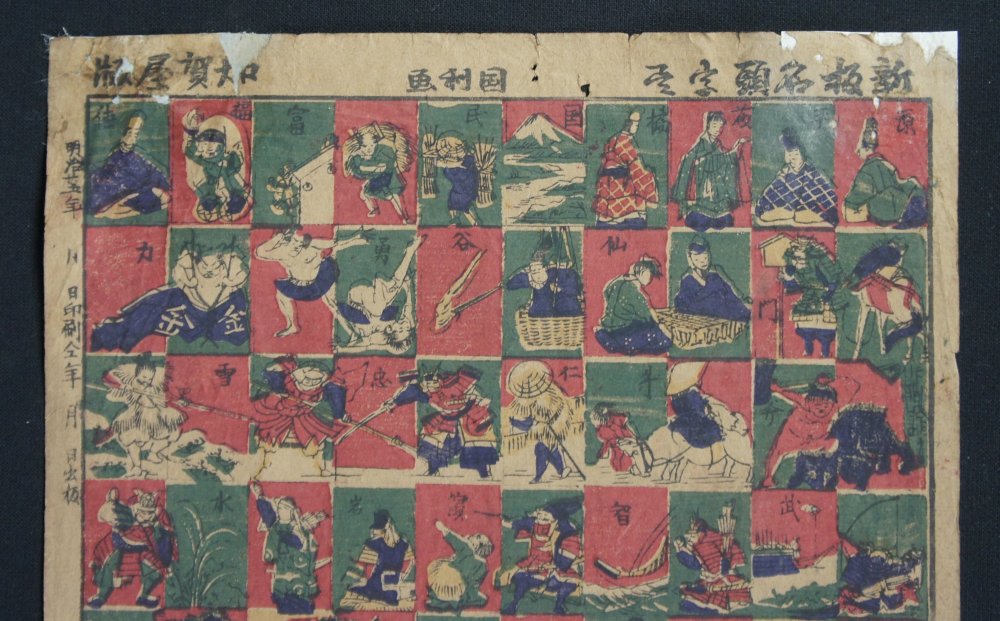 新板名頭字尽
国利画
加賀屋版
源
平
橘
国
民
富
福
徳
門
仙
谷
勇
力
金
斗
仁
忠
雪
武
智
岩
水
年 月 日印刷仝年 月 日出板